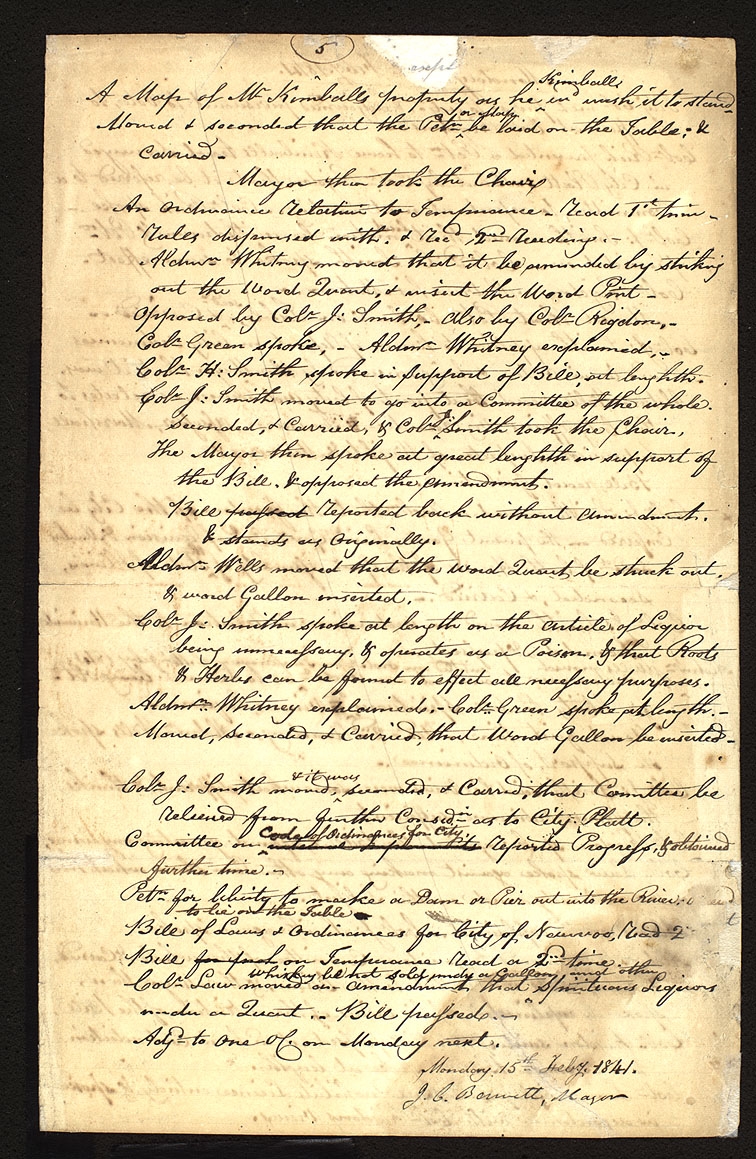 5
Kimballs
A Map of Mr. Kimballs property as he wish it to stand
or Map
Moved & seconded that the Petn. be laid on the Table; &
Carried.
Mayor then took the Chair
An Ordinance Relative to Temperance – read 1st time –
Rules dispensed with. & Red. 2nd Reading. –
Aldmn. Whitney moved that it be amended by striking
out the Word Quart, & insert the Word Pint –
Opposed by Colr. J: Smith, – also by Colr. Rigdon, –
Colr. Green spoke, – Aldmn. Whitney explained, –
Colr. H: Smith spoke in Support of Bill, at lenghth.
Colr. J: Smith moved to go into a Committee of the whole.
seconded, & Carried, & Colr. J: Smith took the Chair,
The Mayor then spoke at great lenghth in support of
the Bill. & opposed the Amendment.
Bill passed reported back without amendment.
& stands as Originally.
Aldmn. Wells moved that the word Quart, be struck out,
& word Gallon inserted.
Colr. J: Smith spoke at length on the article of Liquor
being unnecessary, & operates as a Poison, & that Roots
& Herbs can be found to effect all necessary purposes.
Aldmn. Whitney explained. – Colr. Green spoke at length. –
Moved, Seconded, & Carried, that Word Gallon be inserted –
& it was
Colr. J: Smith moved, seconded, & Carrid, that Comittee be
releived from further Consid:n as to City Platt.
Code of Ordinances for City
Committee on reported Progress, & obtained
further time. –
Petn. for liberty to make a Dam or Pier out into the River,
to lie on the Table
Bill of Laws & Ordinances for City of Nauvoo, read 2
Bill on Temperance read a 2nd time.
whiskey be not sold under a Gallon, and other
Colr. Law moved an amendment that Spirituous Liquors
under a Quart. – Bill passed. –
Adjd. to One O.C. on Monday next.
Monday 15th Feby. 1841.
J. C. Bennett, Mayor